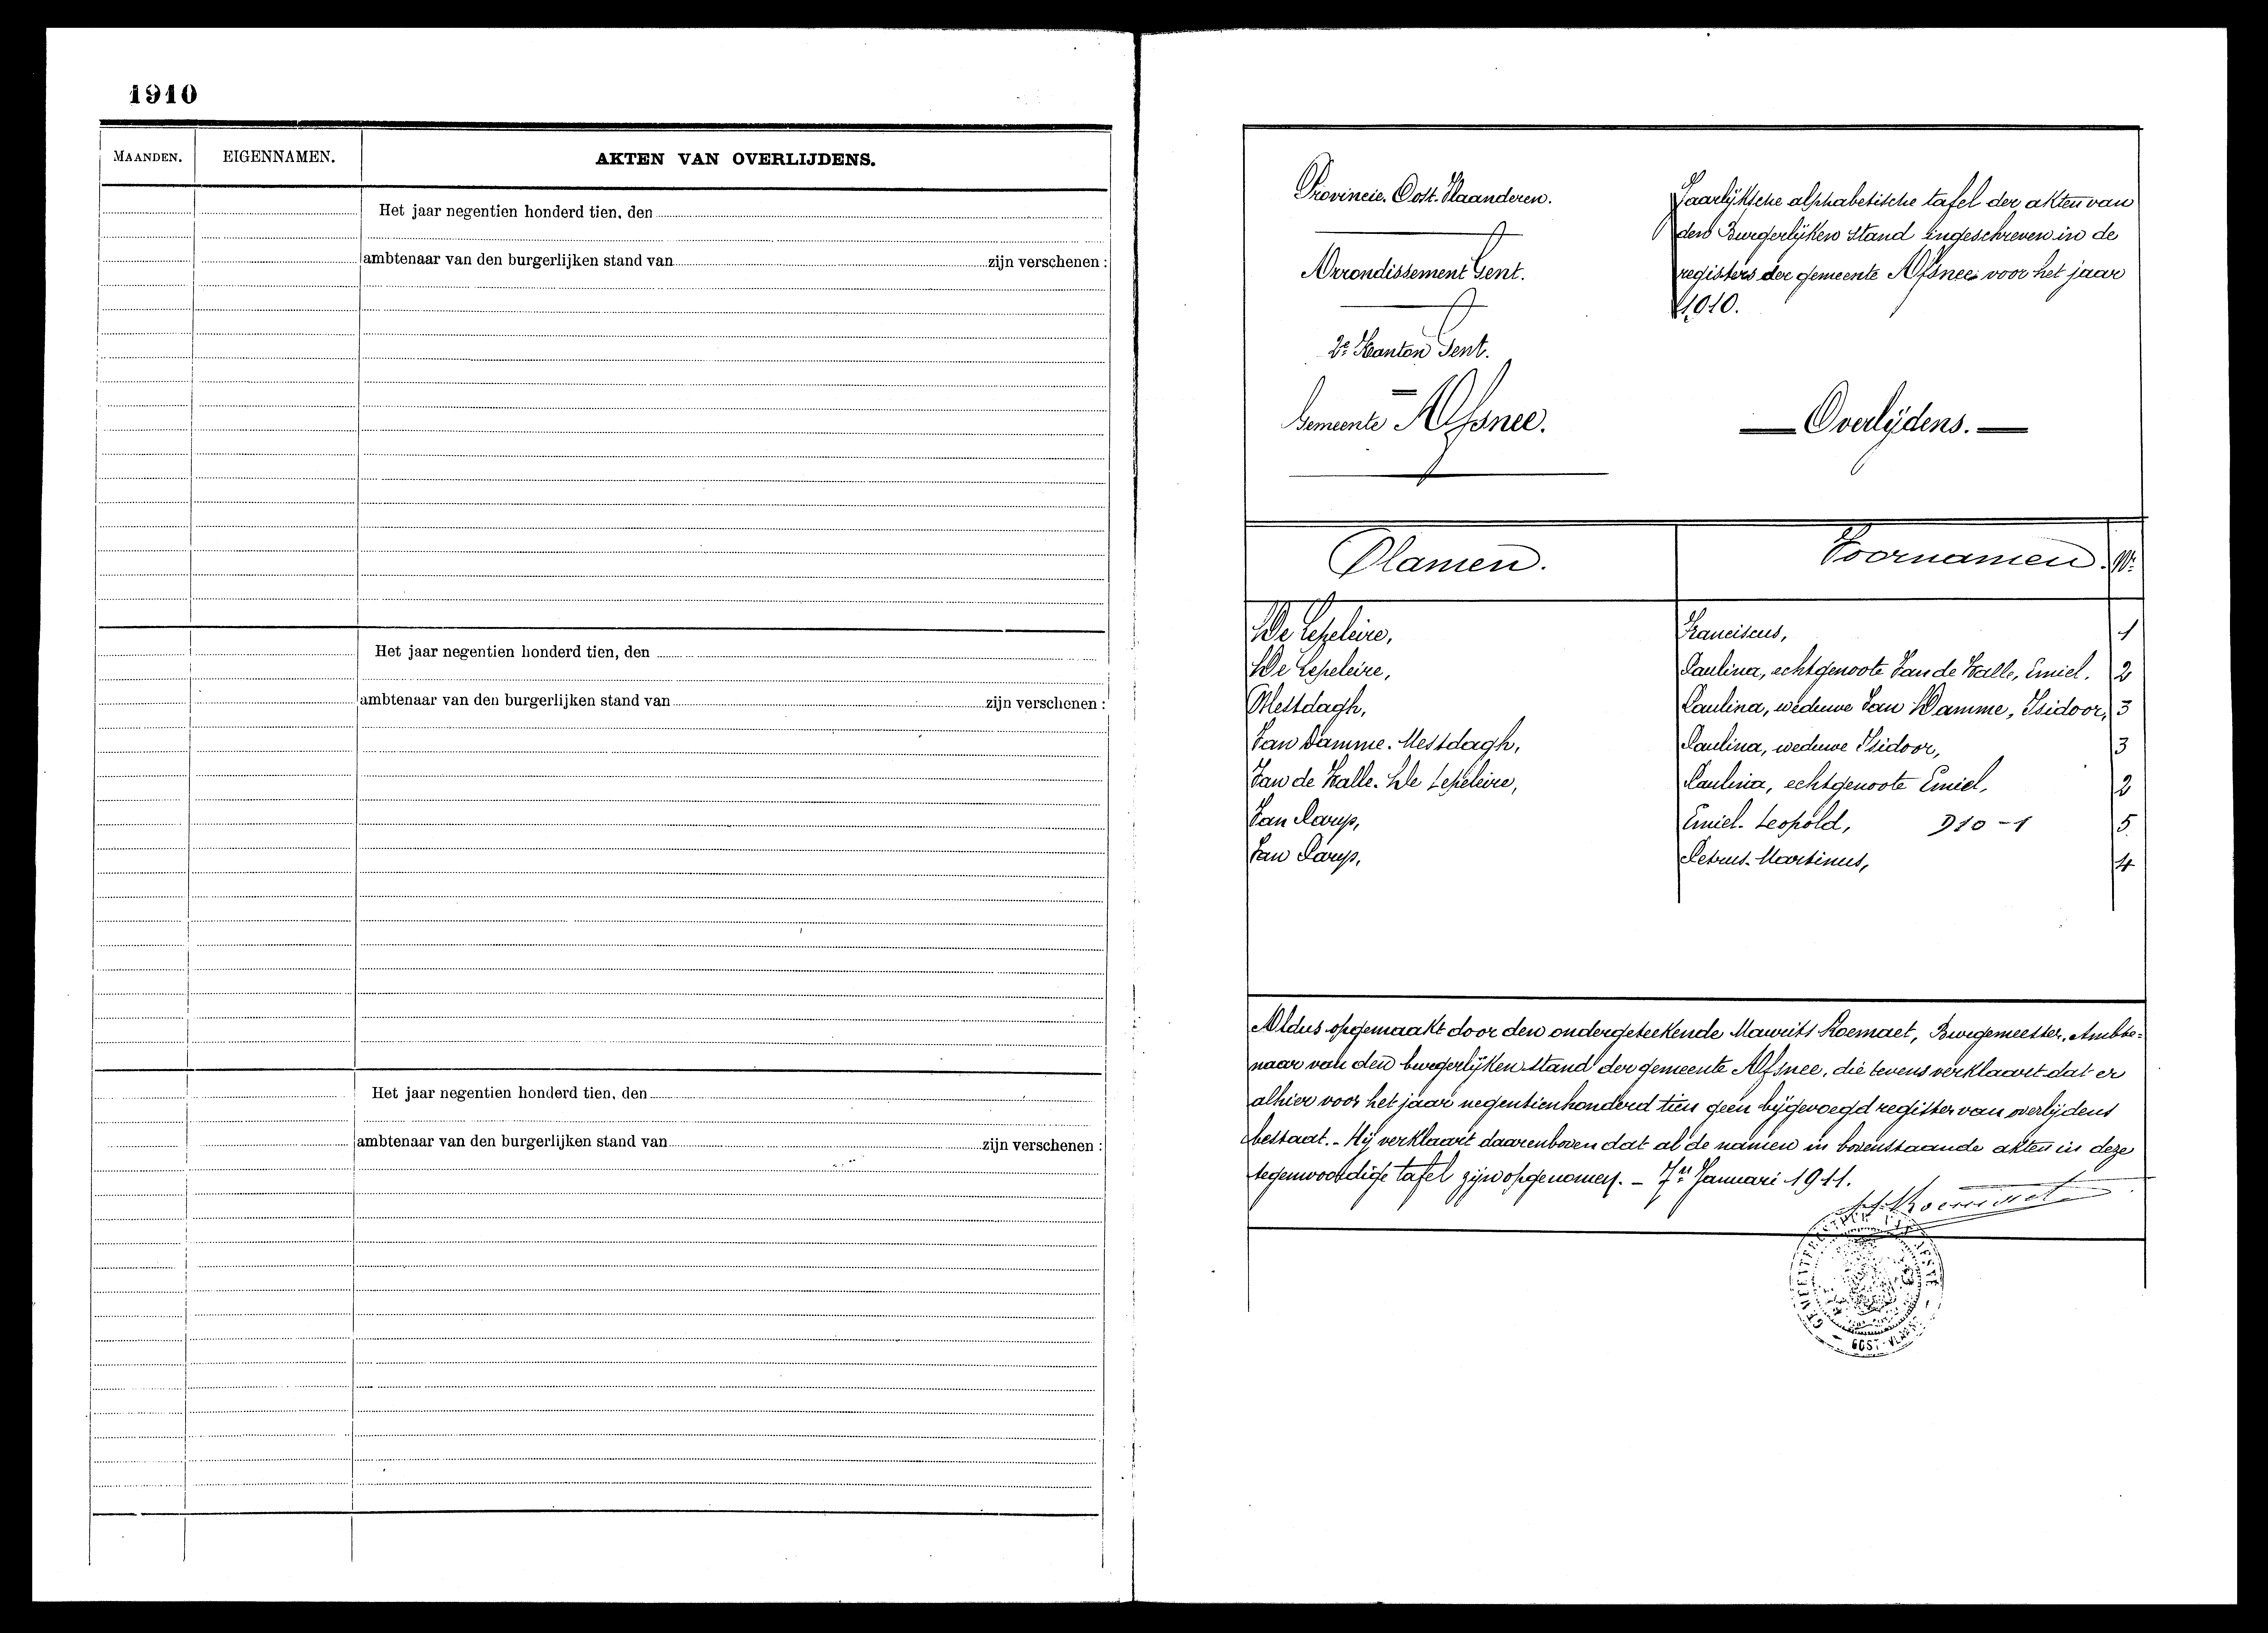 1910
MAANDEN. EIGENNAMEN. AKTEN VAN OVERLIJDENS.
Het jaar negentien honderd tien, den
ambtenaar van den burgerlijken stand van zijn verschenen :
Het jaar negentien honderd tien, den
ambtenaar van den burgerlijken stand van zijn verschenen :
Het jaar negentien honderd tien, den
ambtenaar van den burgerlijken stand van zijn verschenen :
Provincie. Oost-Vlaanderen.
Arrondissement Gent.
2e Kanton Gent.
Gemeente Afsnee.
Jaarlijksche alphabetische tafel der akten van
den Burgerlijken Stand ingeschreven in de
registers der gemeente Afsnee voor het jaar
1910.
Overlijdens.
Namen. Voornamen. N.
De Lepeleire, Franciscus, 1
De Lepeleire, Paulina, echtgenoote Van de Walle, Emiel. 2
Mestdagh, Paulina, weduwe Van Damme, Isidoor, 3
Van Damme. Mestdagh, Paulina, weduwe Isidoor, 3
Van de Walle. De Lepeleire, Paulina, echtgenoote Emiel, 2
Van Parys, Emiel. Leopold, 910-1 5
Van Parys, Petrus. Martinus, 4
Aldus opgemaakt door den ondergeteekende Maurits Roemaet, Burgemeester, Ambte-
naar van den burgerlijken stand der gemeente Afsnee, die tevens verklaart dat er
alhier voor het jaar negentienhonderd tien geen bijgevoegd register van overlijdens
bestaat. - Hij verklaart daarenboven dat al de namen in bovenstaande akten in deze
tegenwoordige tafel zijn opgenomen. - 7n Januari 1911.